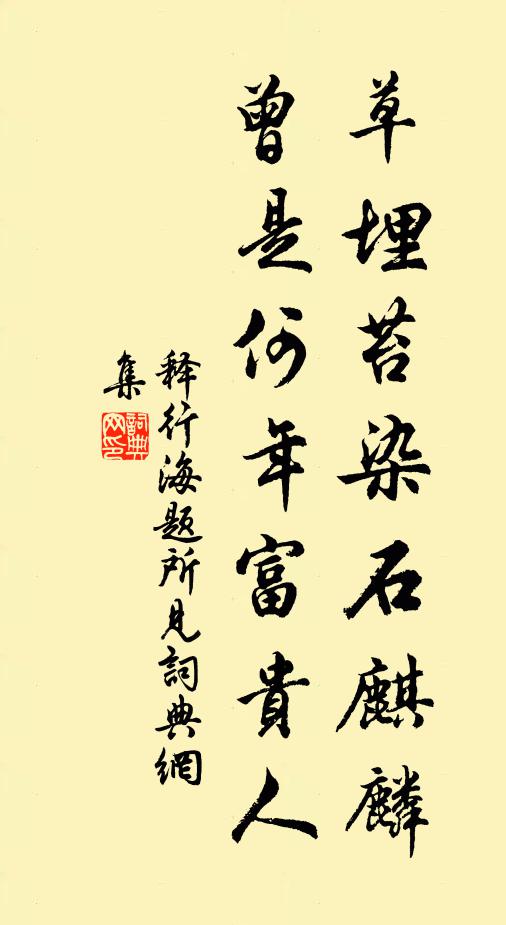 草埋苔染石麒麟
曾是何年富貴人
释行海题所见詞典網
集
詞典
网印